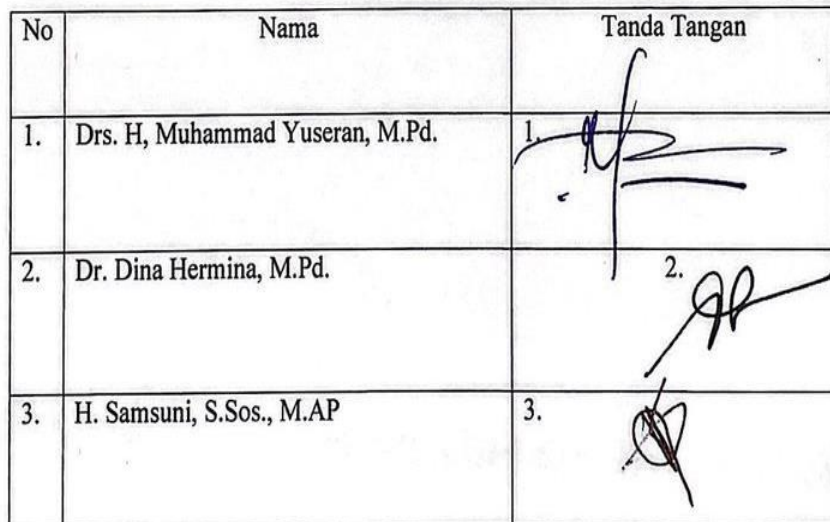 No Nama Tanda Tangan
1. Drs. H, Muhammad Yuseran, M.Pd. 1.
2. Dr. Dina Hermina, M.Pd. 2.
3. H. Samsuni, S.Sos., M.AP 3.